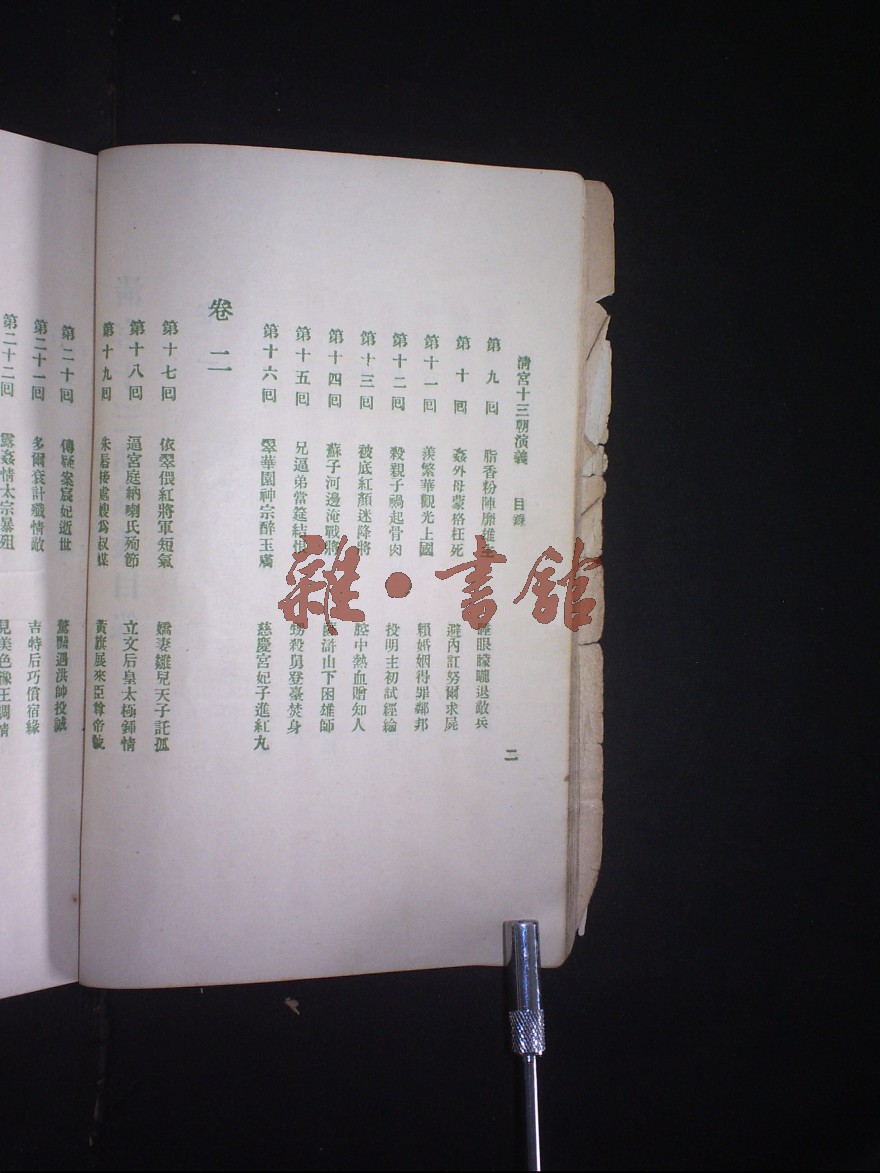 清宮十三朝演義 目錄 二
第九回 脂香粉陣靡雄 睡眼朦朧退敵兵
第十回 姦外母蒙格枉死 避內訌努爾求屍
第十一回 羨繁華觀光上國 賴婚姻得罪鄰邦
第十二回 殺親子禍起骨肉 投明主初試經綸
第十三回 被底紅顏迷降將 腔中熱血贈知人
第十四回 蘇子河邊淹戰將 滸山下困雄師
第十五回 兄逼弟當筵結恨 甥殺舅登臺焚身
第十六回 翠華園神宗醉玉膚 慈慶宮妃子進紅丸
卷二
第十七回 依翠偎紅將軍短氣 嬌妻雛兒天子託孤
第十八回 逼宮庭納喇氏殉節 立文后皇太極鍾情
第十九回 朱脣接處嫂爲叔媒 黃旗展來臣尊帝號
第二十回 傳疑案宸妃逝世 驚豔遇洪帥投誠
第二十一回 多爾袞計殲情敵 吉特后巧償宿緣
第二十二回 露姦情太宗暴殂 見美色豫王調情
雜·書館